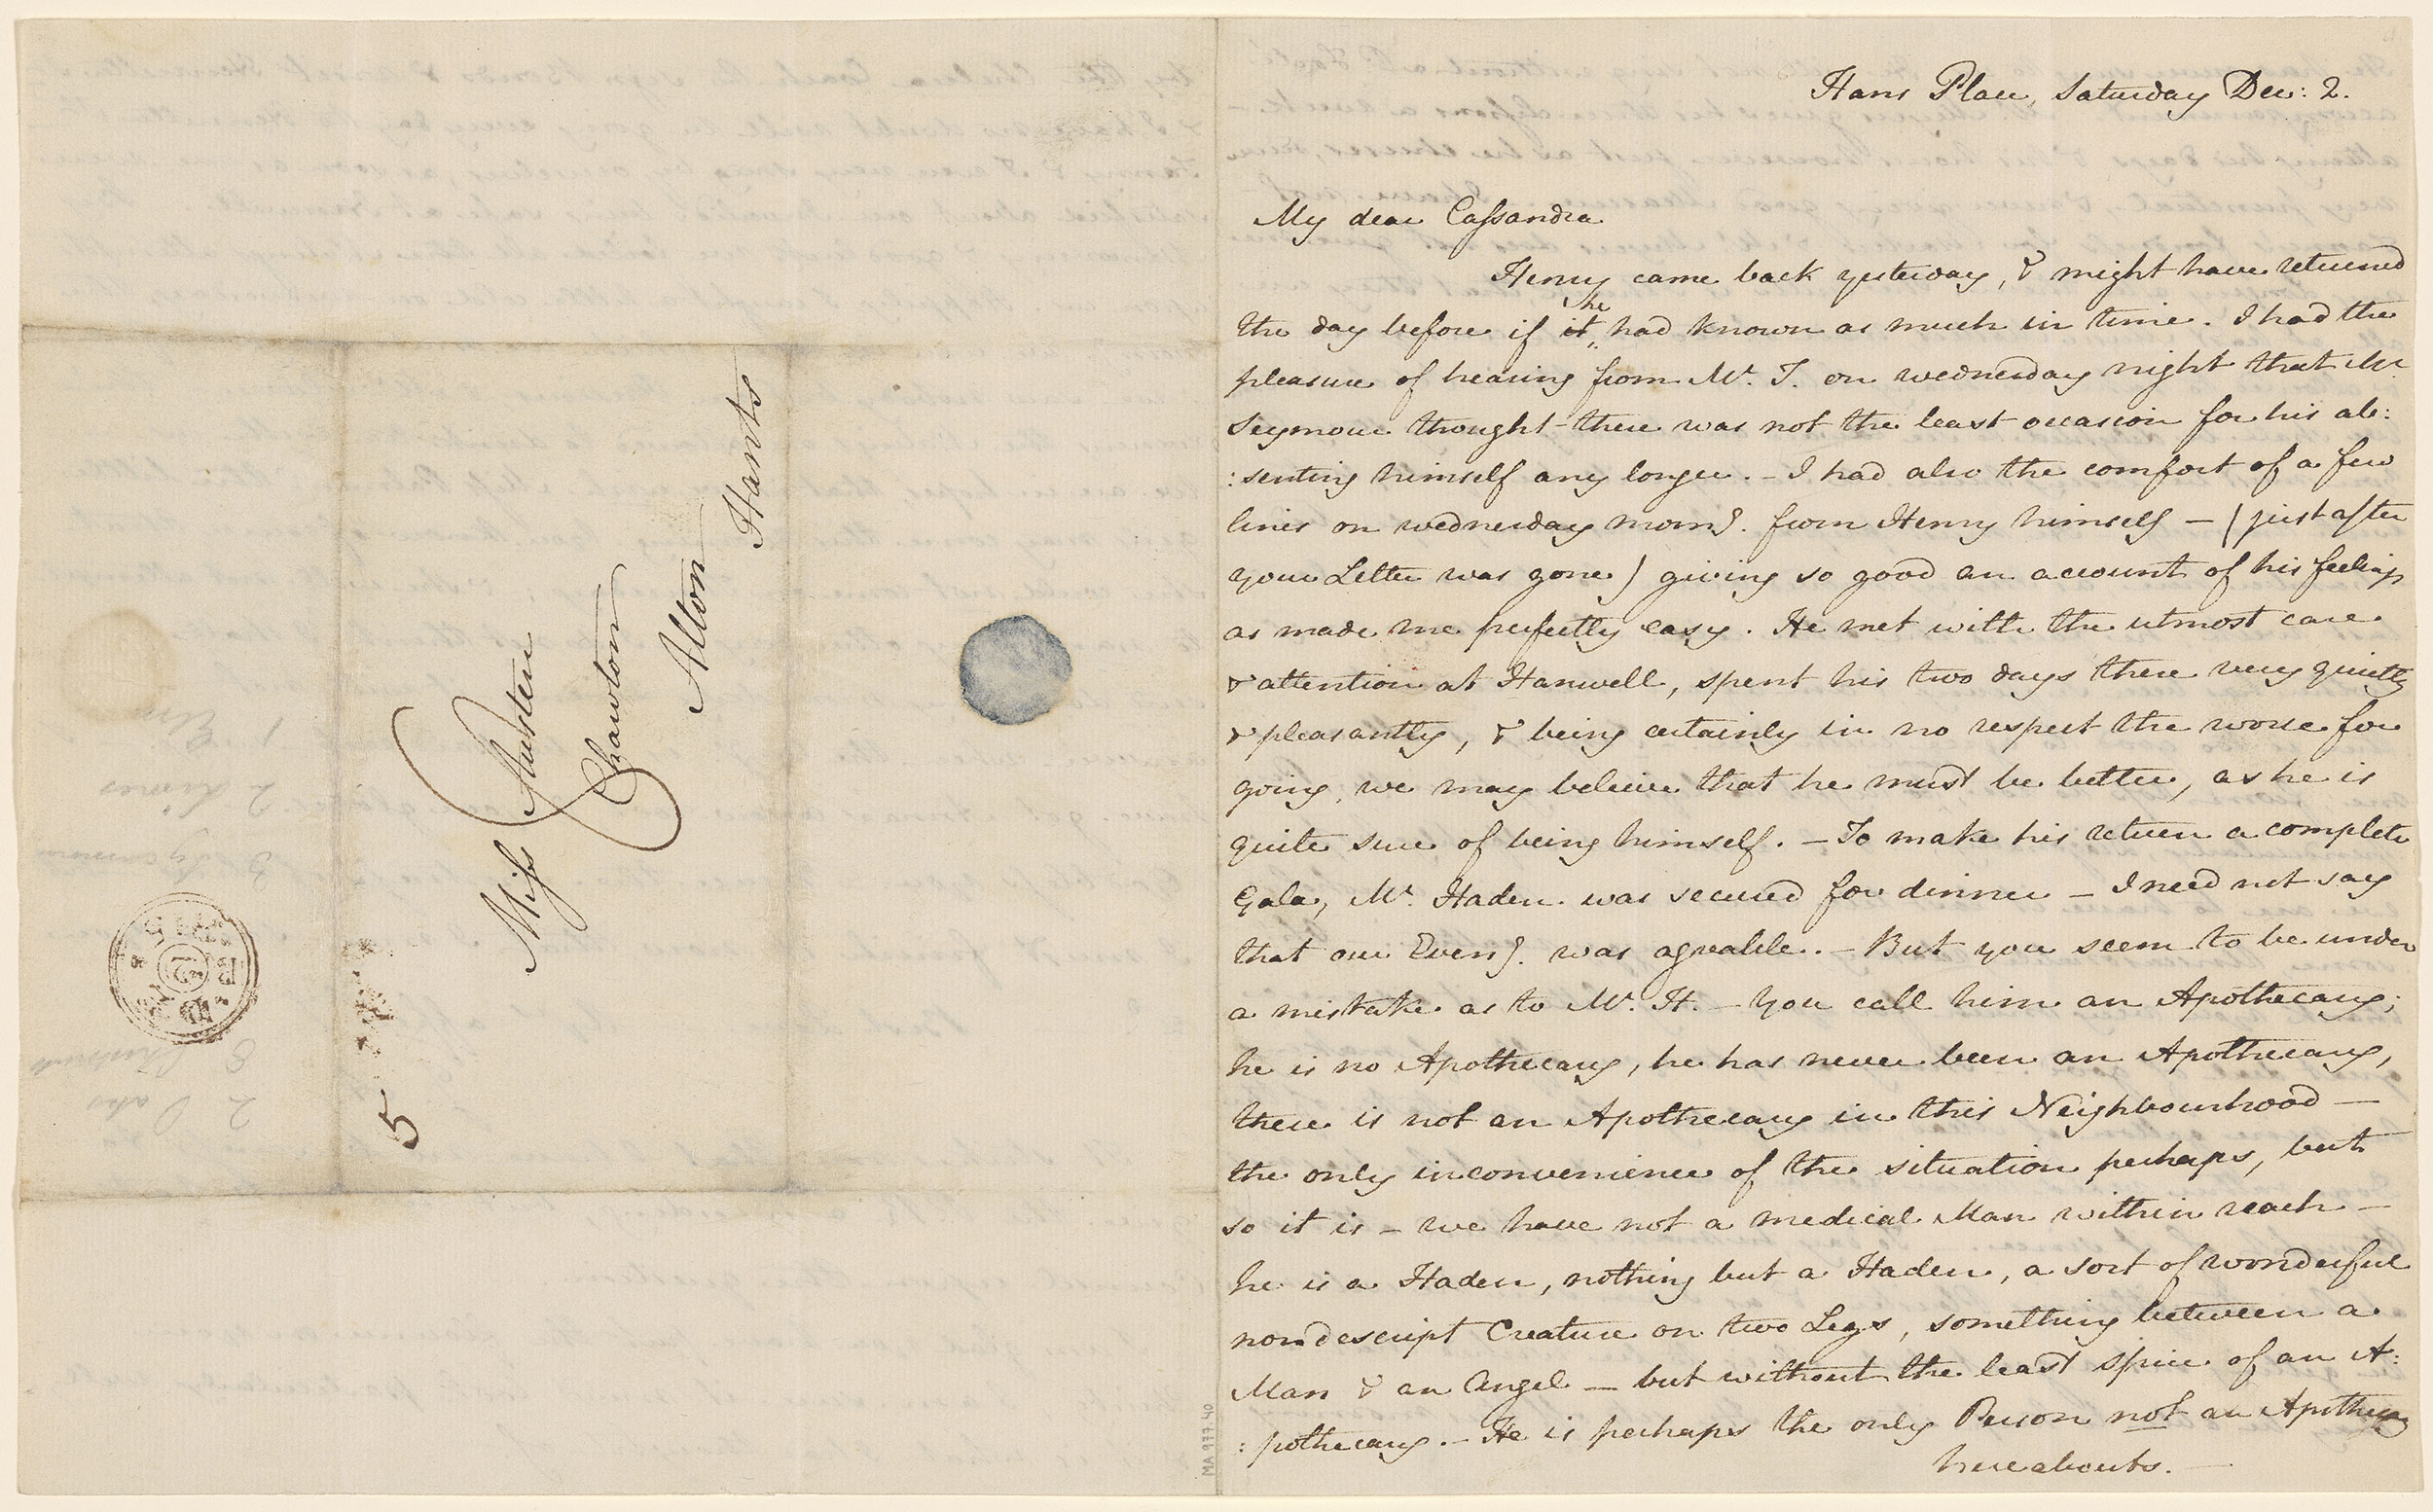 Miss Austen
Chawton
Alton
Hants
5
Hans Place, Saturday Dec: 2.
My dear Cassandra
Henry came back yesterday, & might have returned
the day before if it he had known as much in time. I had the
pleasure of hearing from Mr. T. on wednesday night that Mr
Seymour thought there was not the least occasion for his ab:
:senting himself any longer. – I had also the comfort of a few
lines on wednesday morng. from Henry himself – (just after
your Letter was gone) giving so good an account of his feelings
as made me perfectly easy. He met with the utmost care
& attention at Hanwell, spent his two days there very quietly
& pleasantly, & being certainly in no respect the worse for
going, we may beleive that he must be better, as he is
quite sure of being himself. – To make his return a complete
Gala, Mr. Haden was secured for dinner – I need not say
that our Eveng. was agreable. – But you seem to be under
a mistake as to Mr. H. – You call him an Apothecary;
he is no Apothecary, he has never been an Apothecary,
there is not an Apothecary in this Neighbourhood –
the only inconvenience of the situation perhaps, but
so it is – we have not a medical Man within reach –
he is a Haden, nothing but a Haden, a sort of wonderful
nondescript Creature on two Legs, something between a
Man & an Angel – but without the least spice of an A:
:pothecary. – He is perhaps the only Person not an Apothecary
hereabouts. –
MA 977.40